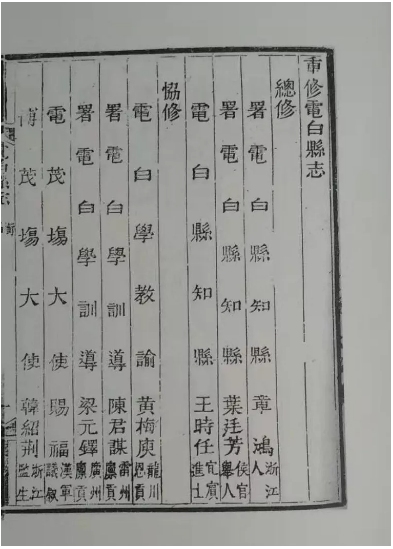 重修電白縣志
總修
署電白縣知縣章鴻浙江人
署電白縣知縣葉廷芳侯官舉人
電白縣知縣王時任宜賓進士
協修
電白學教諭黃梅庾龍川恩貢
署電白學訓導陳君謀雷州廩貢
署電白學訓導梁元鐸廣州廩貢
電茂場大使賜福漢軍議敘
茂場大使韓紹荆浙江監生